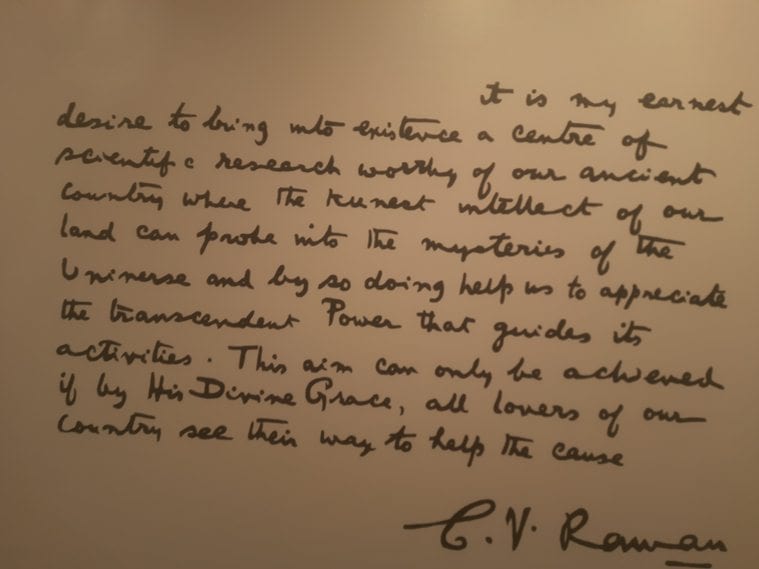 It is my earnest
desire to bring into existence a centre of
scientific research worthy of our ancient
country where the keenest intellect of our
land can probe into the mysteries of the
Universe and by so doing help us to appreciate
the transcendent Power that guides its
activities. This aim can only be achieved
if by His Divine Grace, all lovers of our
country see their way to help the cause
C. V. Raman